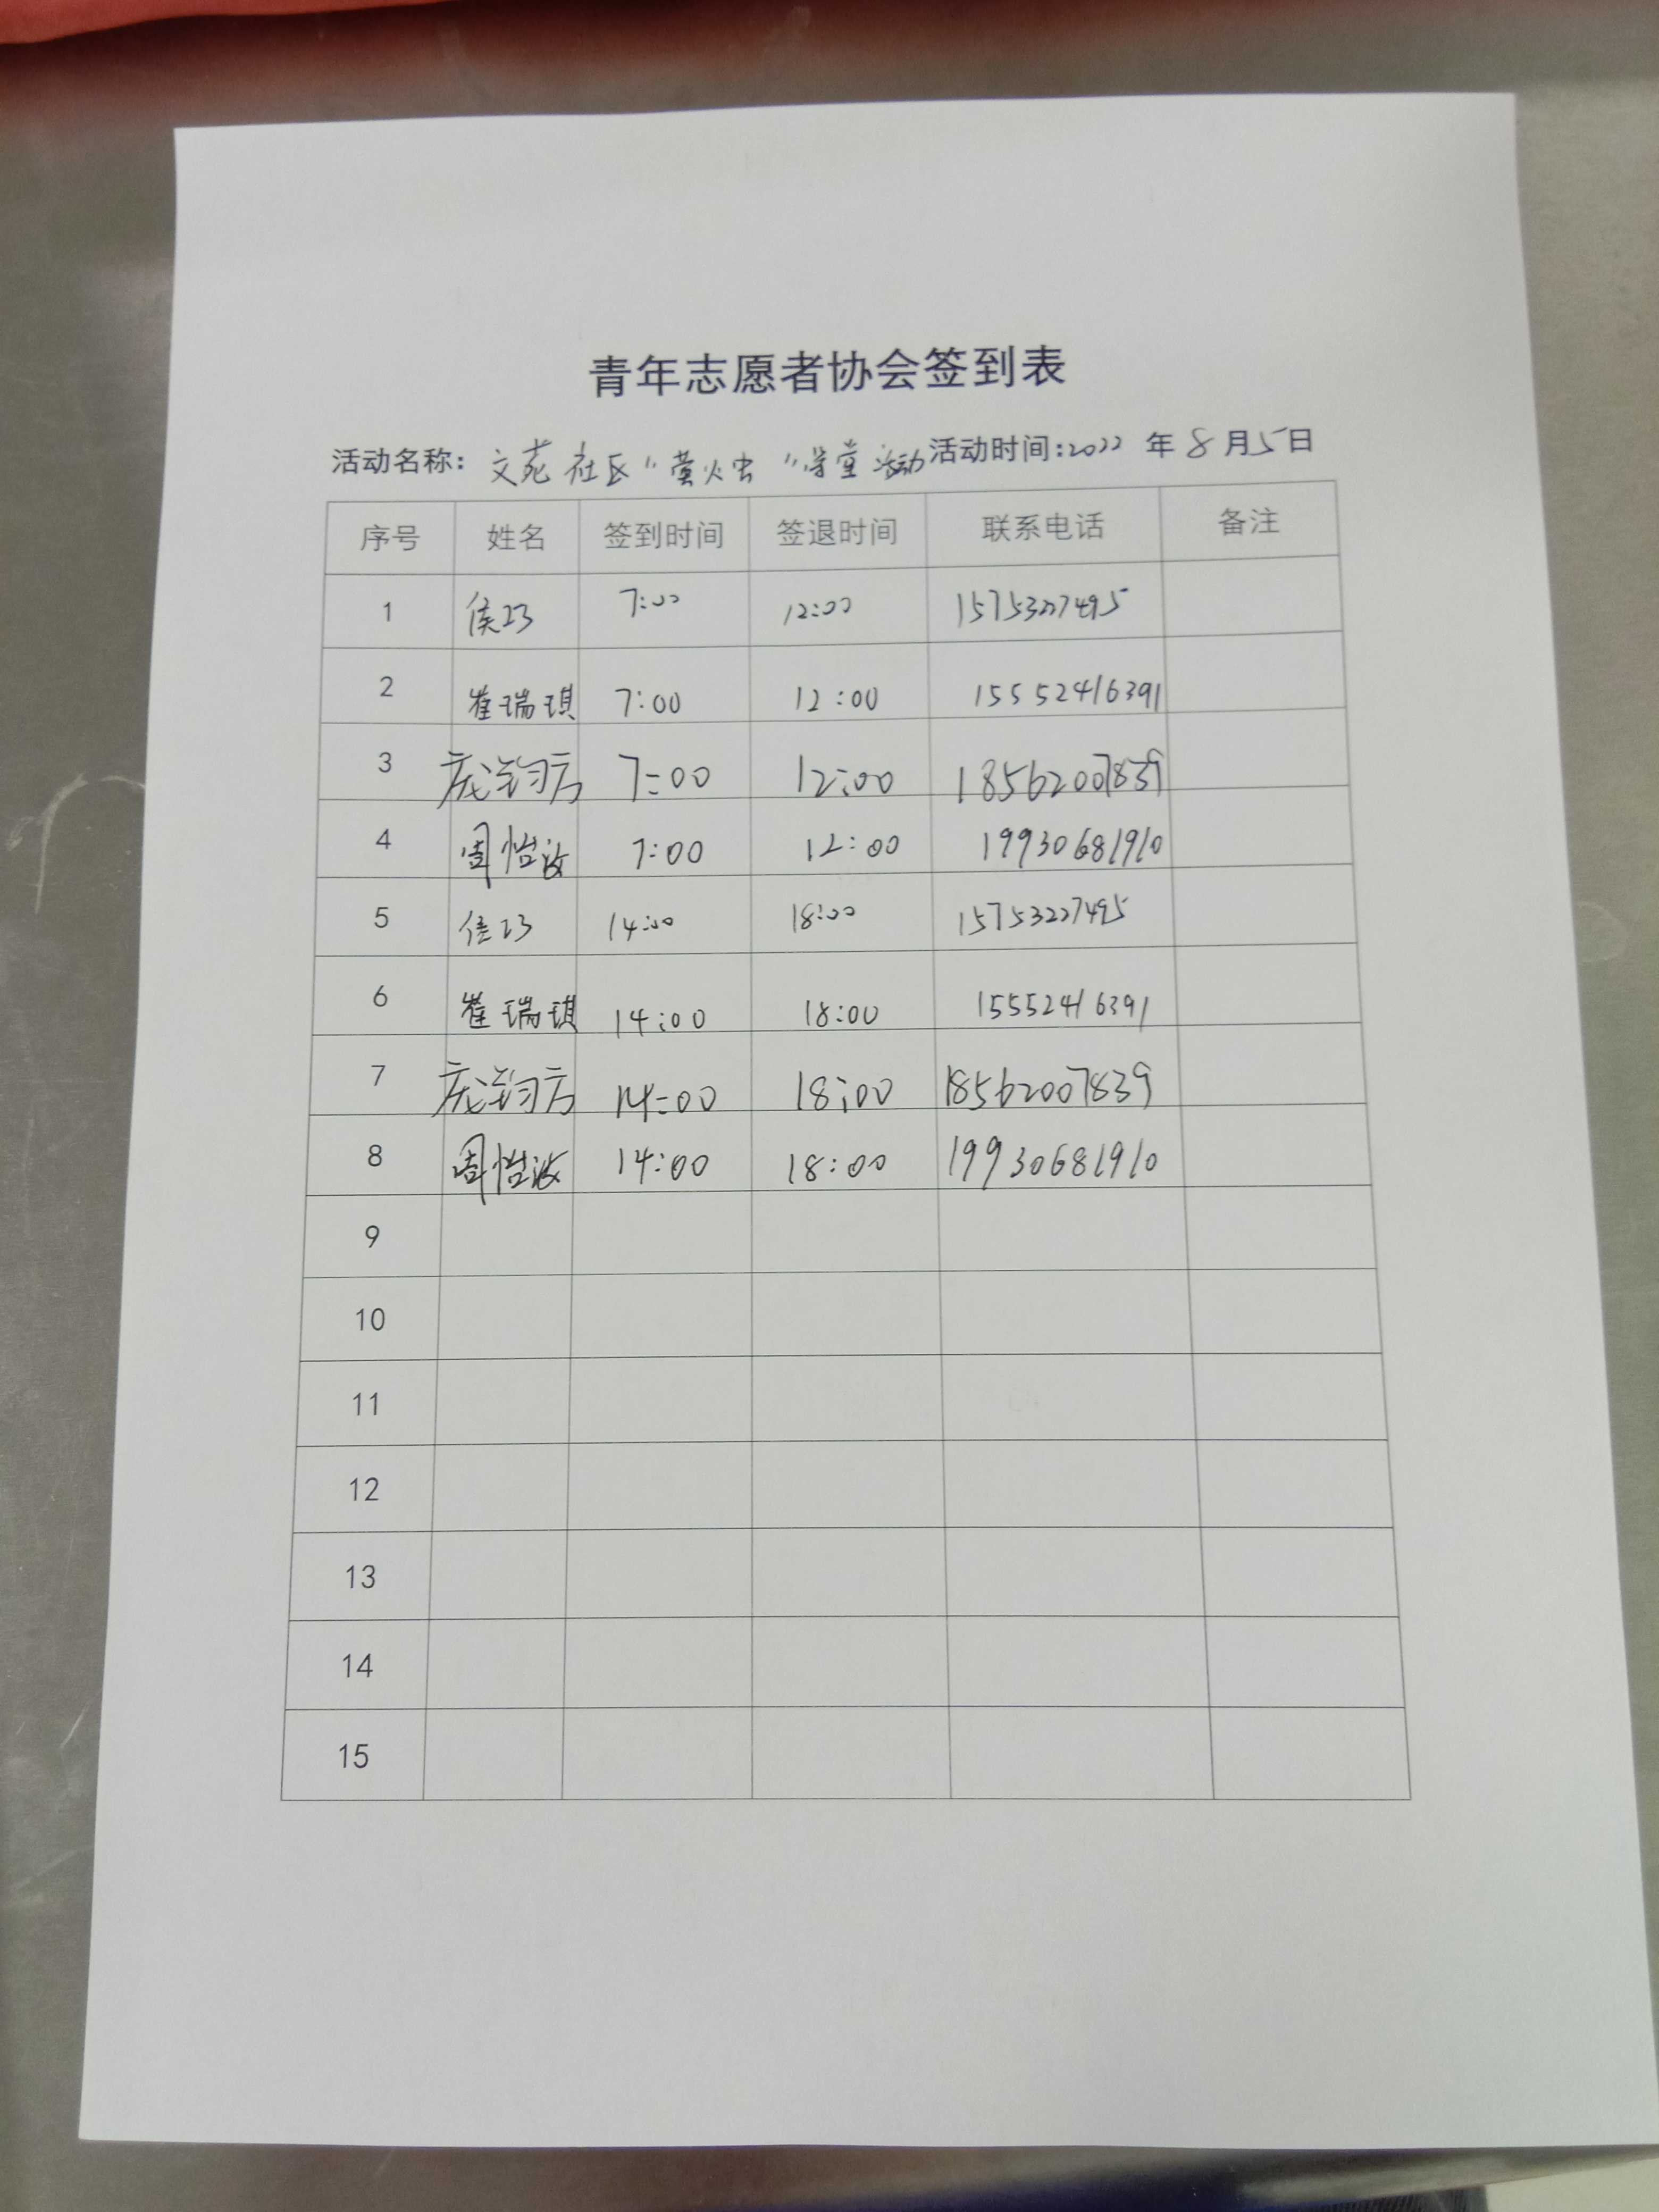 青年志愿者协会签到表
活动名称: 文苑社区"萤火虫"学堂活动 活动时间:2022 年 8 月 5 日
序号 姓名 签到时间 签退时间 联系电话 备注
1 侯巧 7:00 12:00 15753227495
2 崔瑞琪 7:00 12:00 15552416391
3 7:00 12:00 18562007839
4 周怡汝 7:00 12:00 19930681910
5 侯巧 14:00 18:00 15753227495
6 崔瑞琪 14:00 18:00 15552416391
7 14:00 18:00 18562007839
8 周怡汝 14:00 18:00 19930681910
9
10
11
12
13
14
15